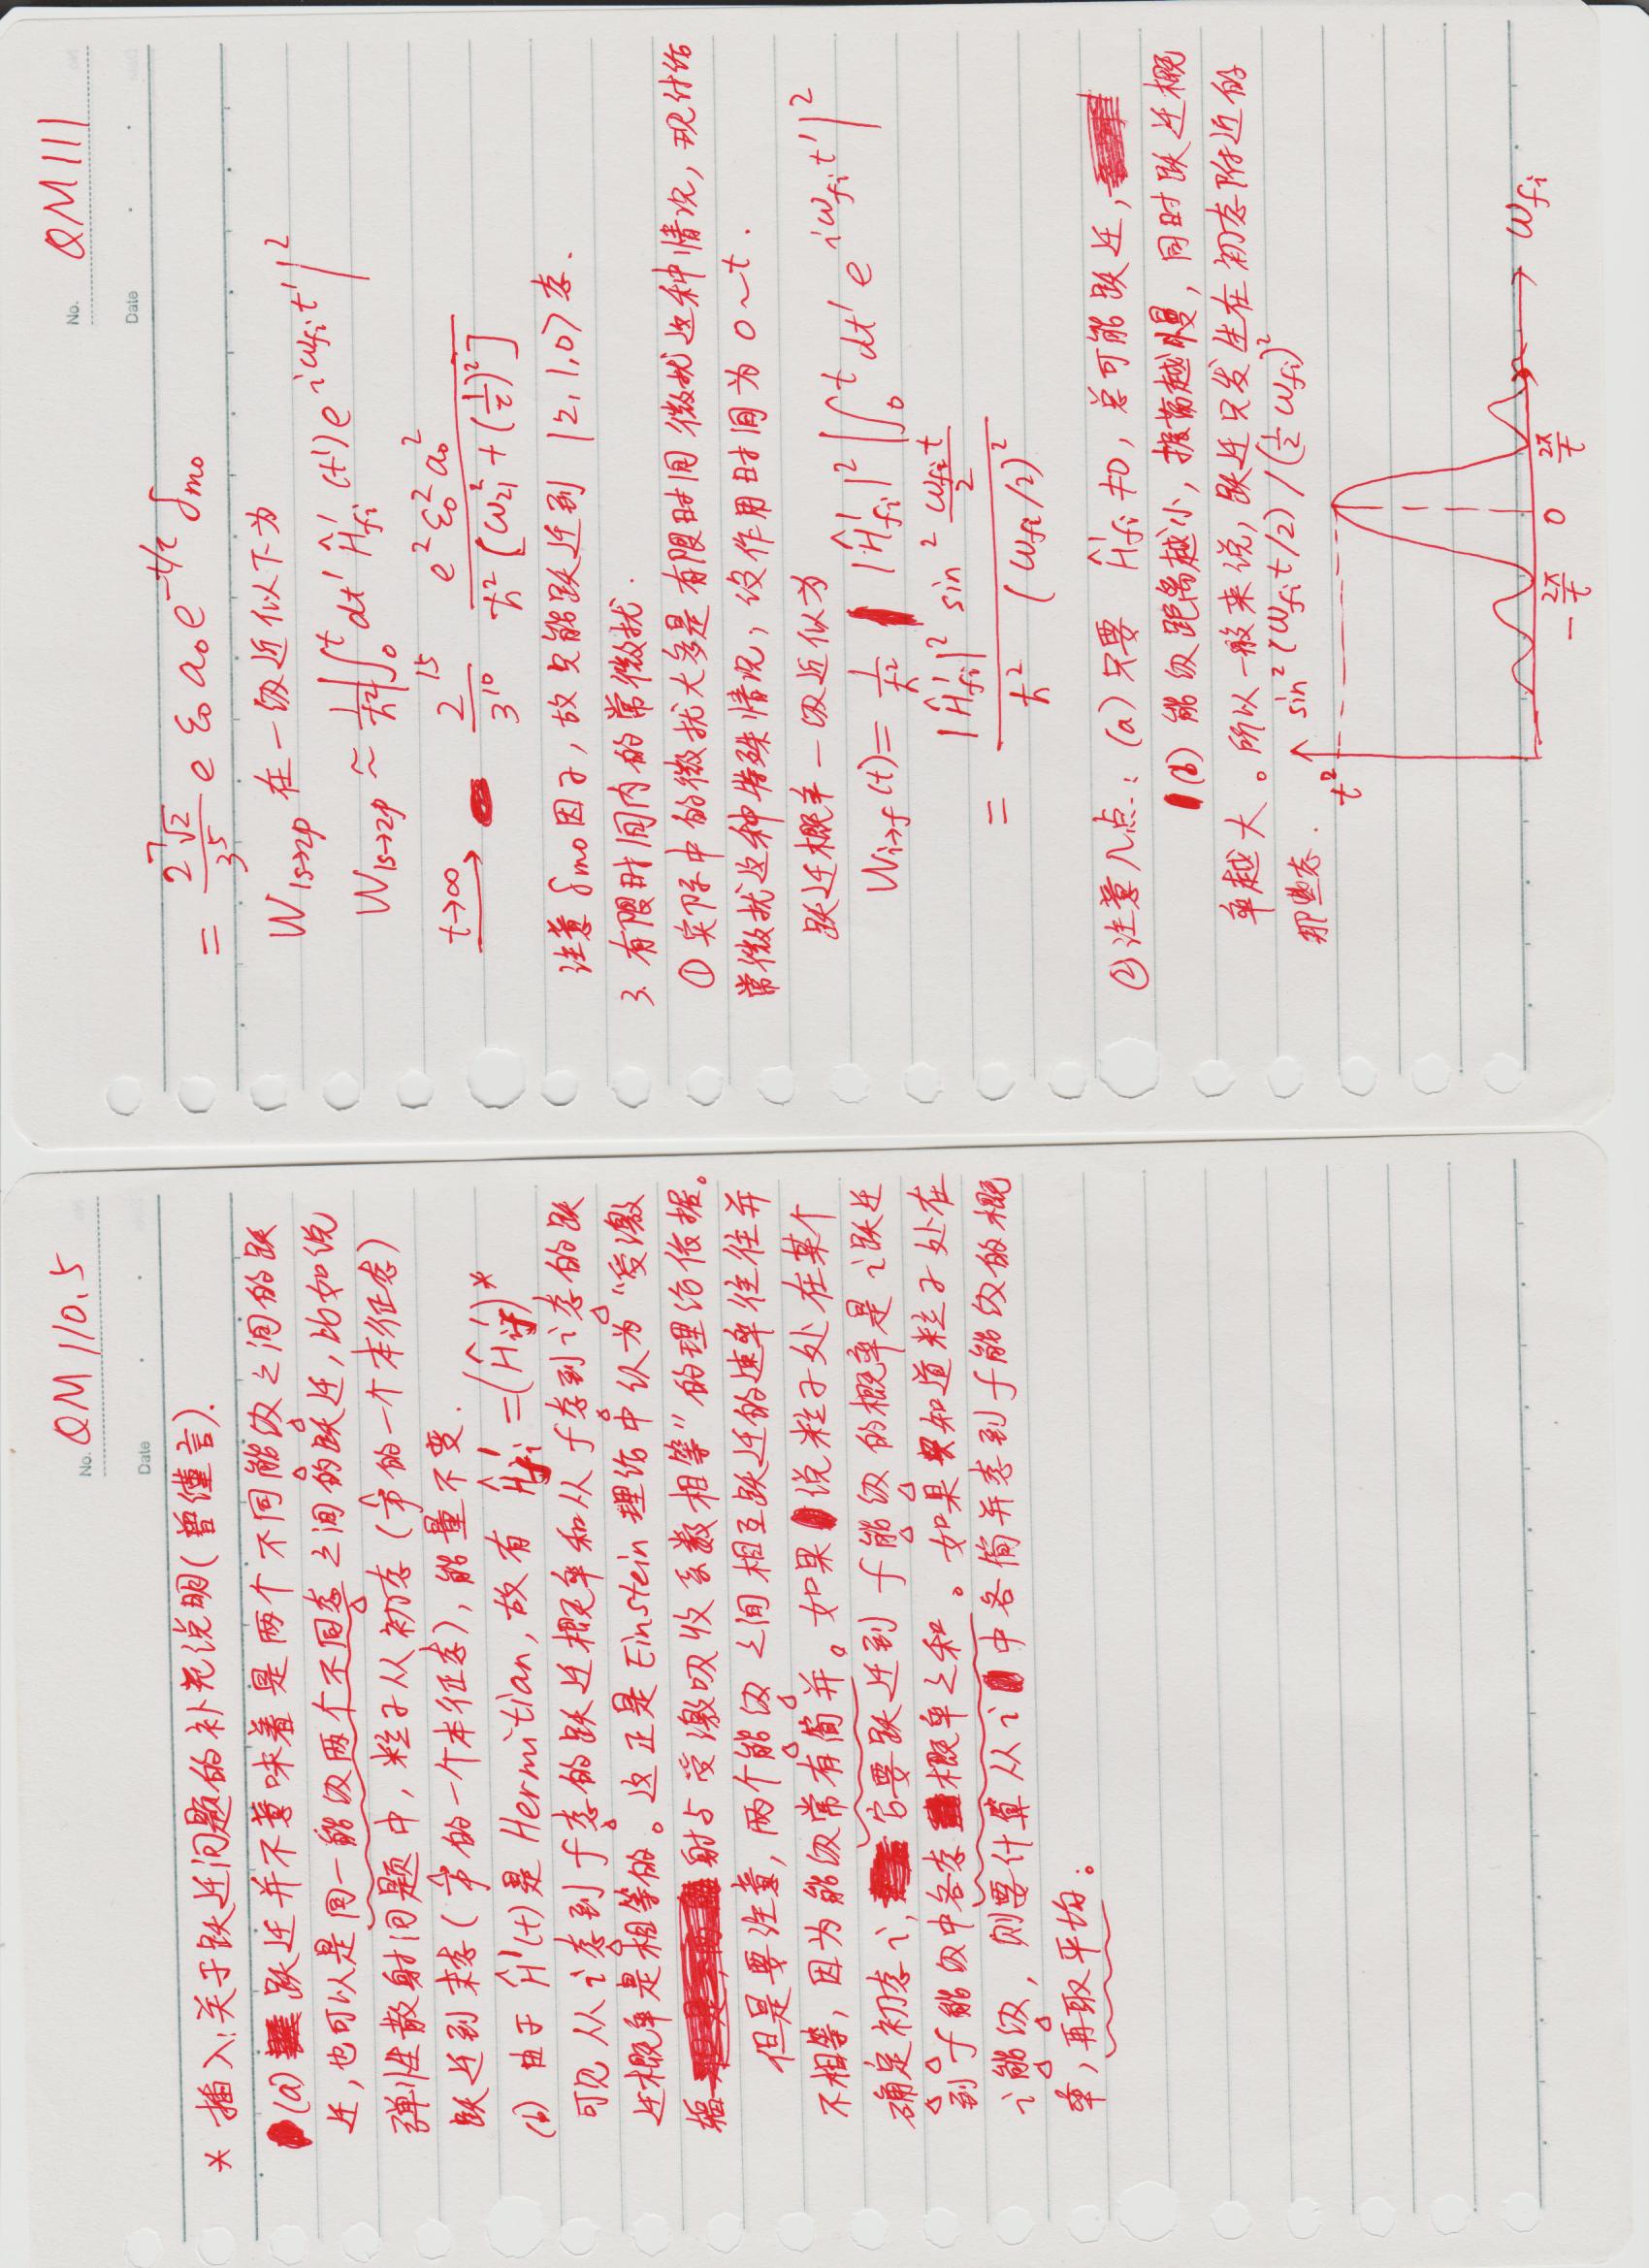 No. QM 110.5
Date
* 插入:关于跃迁问题的补充说明(曾谨言).
(a) 跃迁并不意味着是两个不同能级之间的跃
迁,也可以是同一能级两个不同态之间的跃迁,比如说
弹性散射问题中,粒子从初态(p̂的一个本征态)
跃迁到末态(p̂的一个本征态),能量不变.
(b) 由于 Ĥ'(t)是 Hermitian,故有 Ĥ'_{fi} = (Ĥ'_{if})*
可见从i态到f态的跃迁概率和从f态到i态的跃
迁概率是相等的。这正是Einstein理论中认为“受激
辐射与受激吸收系数相等”的理论依据。
但是要注意,两个能级之间相互跃迁的速率往往并
不相等,因为能级常有简并。如果说粒子处在某个
确定初态i,它要跃迁到f能级的概率是i跃迁
到f能级中各态概率之和。如果只知道粒子处在
i能级,则要计算从i中各简并态到f能级的概
率,再取平均。
No. QM111
Date
= \frac{2^7\sqrt{2}}{3^5} e ε_0 a_0 e^{-t/τ} δ_{m0}
W_{1s→2p} 在一级近似下为
W_{1s→2p} ≈ \frac{1}{ħ^2} |∫_0^t dt' Ĥ'_{fi}(t') e^{iω_{fi}t'}|^2
\xrightarrow{t→∞} \frac{2^{15}}{3^{10}} \frac{e^2 ε_0^2 a_0^2}{ħ^2 [ω_{21}^2 + (\frac{1}{τ})^2]}
注意 δ_{m0}因子,故只能跃迁到 |2,1,0⟩态.
3. 有限时间内的常微扰.
① 实际中的微扰大多是有限时间微扰这种情况,现讨论
常微扰这种特殊情况,设作用时间为 0~t.
跃迁概率一级近似为
W_{i→f}(t) = \frac{1}{ħ^2} |Ĥ'_{fi}|^2 |∫_0^t dt' e^{iω_{fi}t'}|^2
= \frac{|Ĥ'_{fi}|^2 sin^2 \frac{ω_{fi}t}{2}}{ħ^2 (ω_{fi}/2)^2}
② 注意几点: (a) 只要 Ĥ'_{fi} ≠ 0, 总可能跃迁,
(b) 能级距离越小,振荡越慢,同时跃迁概
率越大。所以一般来说,跃迁只发生在初态附近的
那些态.
sin^2(ω_{fi}t/2)/(\frac{1}{2}ω_{fi})^2
t^2
ω_{fi}
-\frac{2π}{t} 0 \frac{2π}{t}